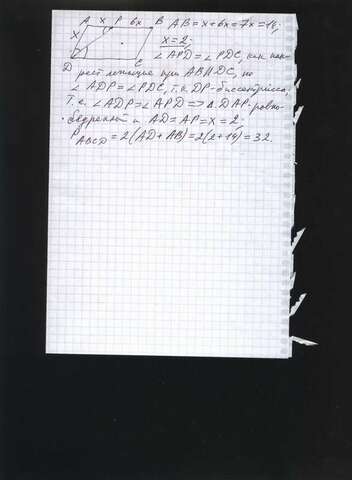 A x P 6x B AB = x + 6x = 7x = 14;
x x = 2;
∠APD = ∠PDC, как нак-
D C рест лежащие при AB∥DC, но
∠ADP = ∠PDC, т.к. DP - биссектриса,
т.к. ∠ADP = ∠APD ⟹ △DAP - равно-
бедренный и AD = AP = x = 2;
P ABCD = 2(AD + AB) = 2(2 + 14) = 32.